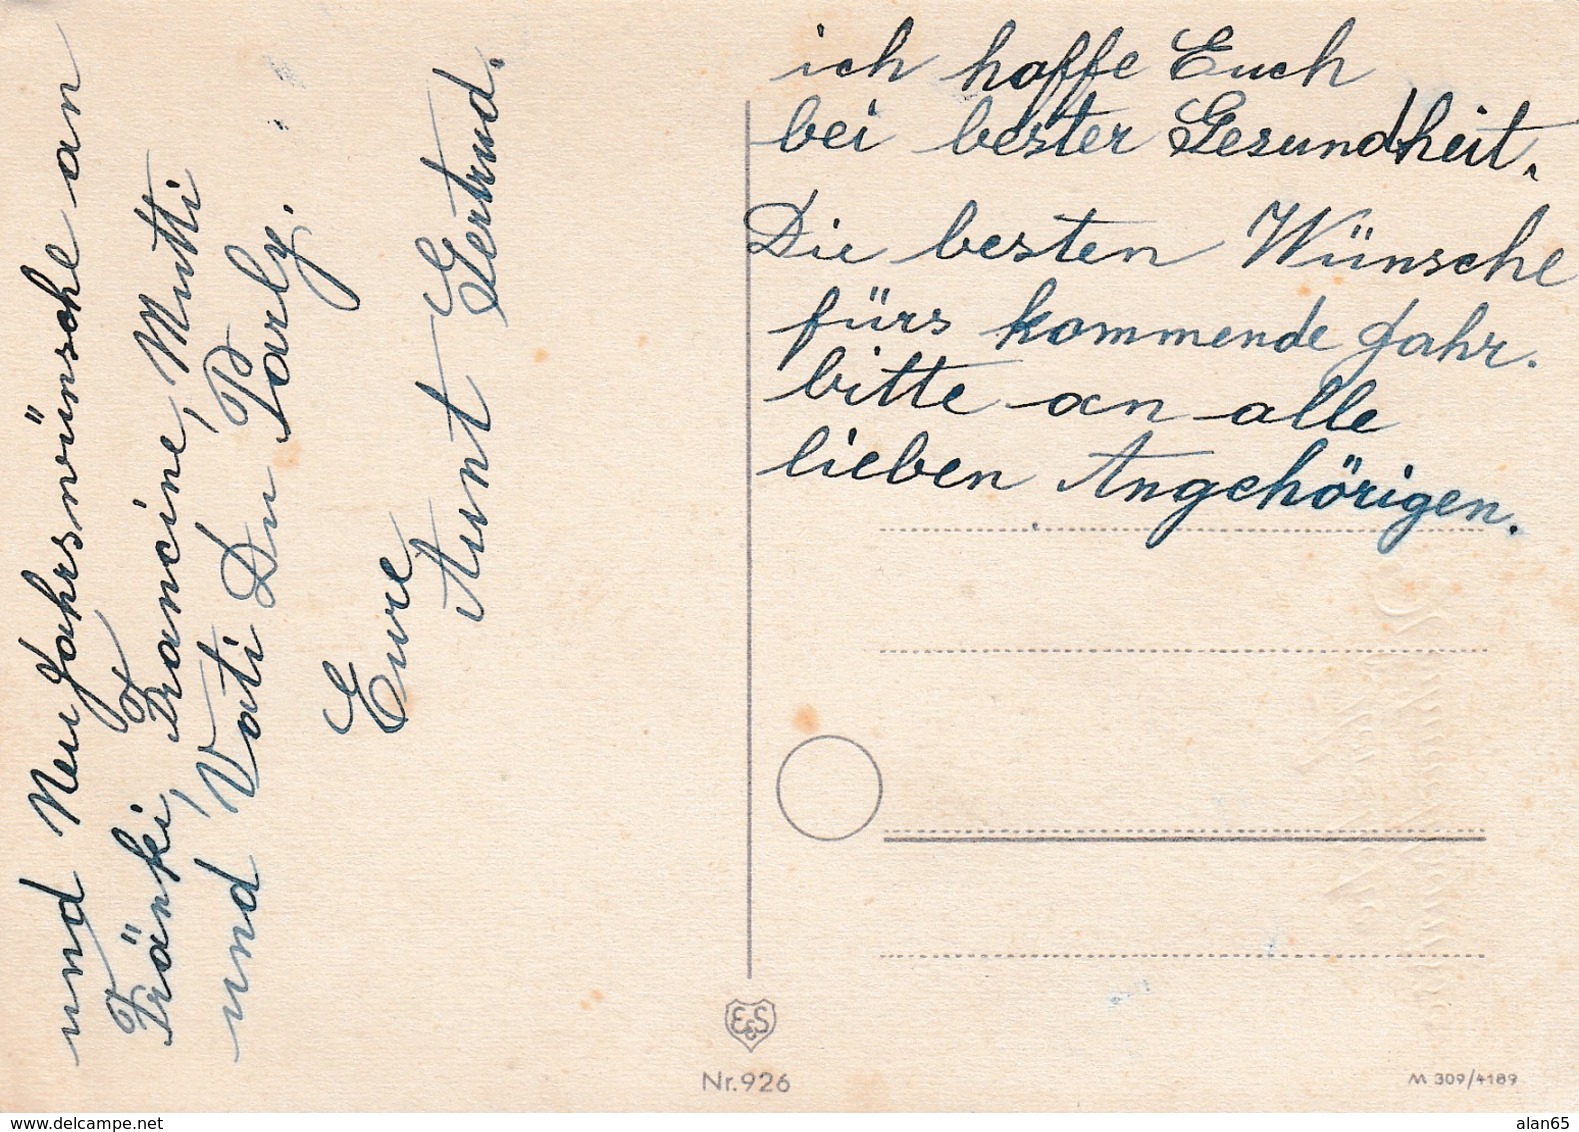 und Neu Jahrswünsche an
Fränki, Francine, Mutti
und Vati Du Parly.
Eure
Aunt Gertrud.
ich hoffe Euch
bei bester Gesundheit.
Die besten Wünsche
fürs kommende Jahr.
bitte an alle
lieben Angehörigen.
E&S
Nr.926
M 309/4189
www.delcampe.net
alan65